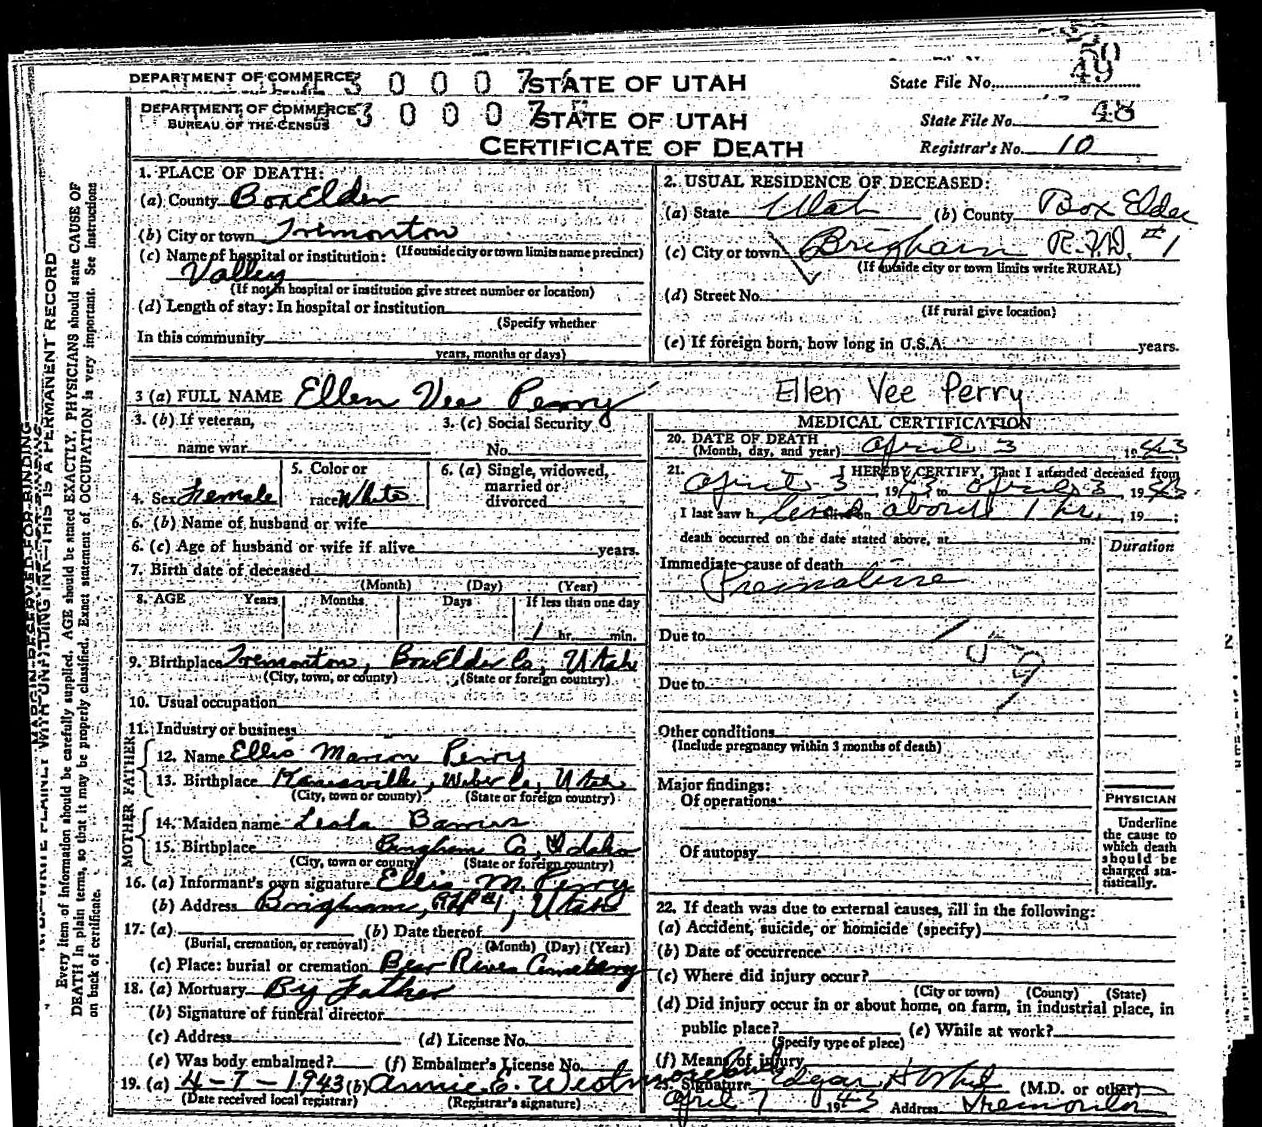 DEPARTMENT OF COMMERCE 3 0 0 0 7 STATE OF UTAH State File No. 50 49
DEPARTMENT OF COMMERCE 3 0 0 0 7 STATE OF UTAH State File No. 48
BUREAU OF THE CENSUS
CERTIFICATE OF DEATH Registrar's No. 10
1. PLACE OF DEATH:
(a) County Box Elder
(b) City or town Tremonton
(If outside city or town limits name precinct)
(c) Name of hospital or institution:
Valley
(If not in hospital or institution give street number or location)
(d) Length of stay: In hospital or institution
(Specify whether
In this community
years, months or days)
2. USUAL RESIDENCE OF DECEASED:
(a) State Utah (b) County Box Elder
(c) City or town Brigham R.F.D. #1
(If outside city or town limits write RURAL)
(d) Street No.
(If rural give location)
(e) If foreign born, how long in U.S.A. years.
3 (a) FULL NAME Ellen Vee Perry Ellen Vee Perry
3. (b) If veteran, 3. (c) Social Security
name war No.
4. Sex Female 5. Color or race White 6. (a) Single, widowed, married or divorced
6. (b) Name of husband or wife
6. (c) Age of husband or wife if alive years.
7. Birth date of deceased
(Month) (Day) (Year)
8. AGE Years Months Days If less than one day
1 hr. min.
9. Birthplace Tremonton, Box Elder Co, Utah
(City, town, or county) (State or foreign country)
10. Usual occupation
11. Industry or business
FATHER
12. Name Ellis Marion Perry
13. Birthplace Weber Co, Utah
(City, town or county) (State or foreign country)
MOTHER
14. Maiden name
15. Birthplace Bingham Co, Idaho
(City, town or county) (State or foreign country)
16. (a) Informant's own signature Ellis M. Perry
(b) Address Brigham, RFD #1, Utah
17. (a) (b) Date thereof
(Burial, cremation, or removal) (Month) (Day) (Year)
(c) Place: burial or cremation Bear River Cemetery
18. (a) Mortuary By Father
(b) Signature of funeral director
(c) Address (d) License No.
(e) Was body embalmed? (f) Embalmer's License No.
19. (a) 4-7-1943 (b) Annie E. Westmoreland
(Date received local registrar) (Registrar's signature)
MEDICAL CERTIFICATION
20. DATE OF DEATH
(Month, day, and year) April 3 1943
21. I HEREBY CERTIFY, That I attended deceased from
April 3 1943 to April 3 1943
I last saw h about 1 hr., 19 ;
death occurred on the date stated above, at m.
Duration
Immediate cause of death
Premature
Due to
159
Due to
Other conditions
(Include pregnancy within 3 months of death)
Major findings:
Of operations
Of autopsy
PHYSICIAN
Underline
the cause to
which death
should be
charged sta-
tistically.
22. If death was due to external causes, fill in the following:
(a) Accident, suicide, or homicide (specify)
(b) Date of occurrence
(c) Where did injury occur?
(City or town) (County) (State)
(d) Did injury occur in or about home, on farm, in industrial place, in
public place? (e) While at work?
(Specify type of place)
(f) Means of injury
23. Signature Edgar (M.D. or other)
April 7 1943 Address Tremonton
MARGIN RESERVED FOR BINDING
WRITE PLAINLY WITH UNFADING INK—THIS IS A PERMANENT RECORD
Every item of information should be carefully supplied. AGE should be stated EXACTLY. PHYSICIANS should state CAUSE OF
DEATH in plain terms, so that it may be properly classified. Exact statement of OCCUPATION is very important. See instructions
on back of certificate.